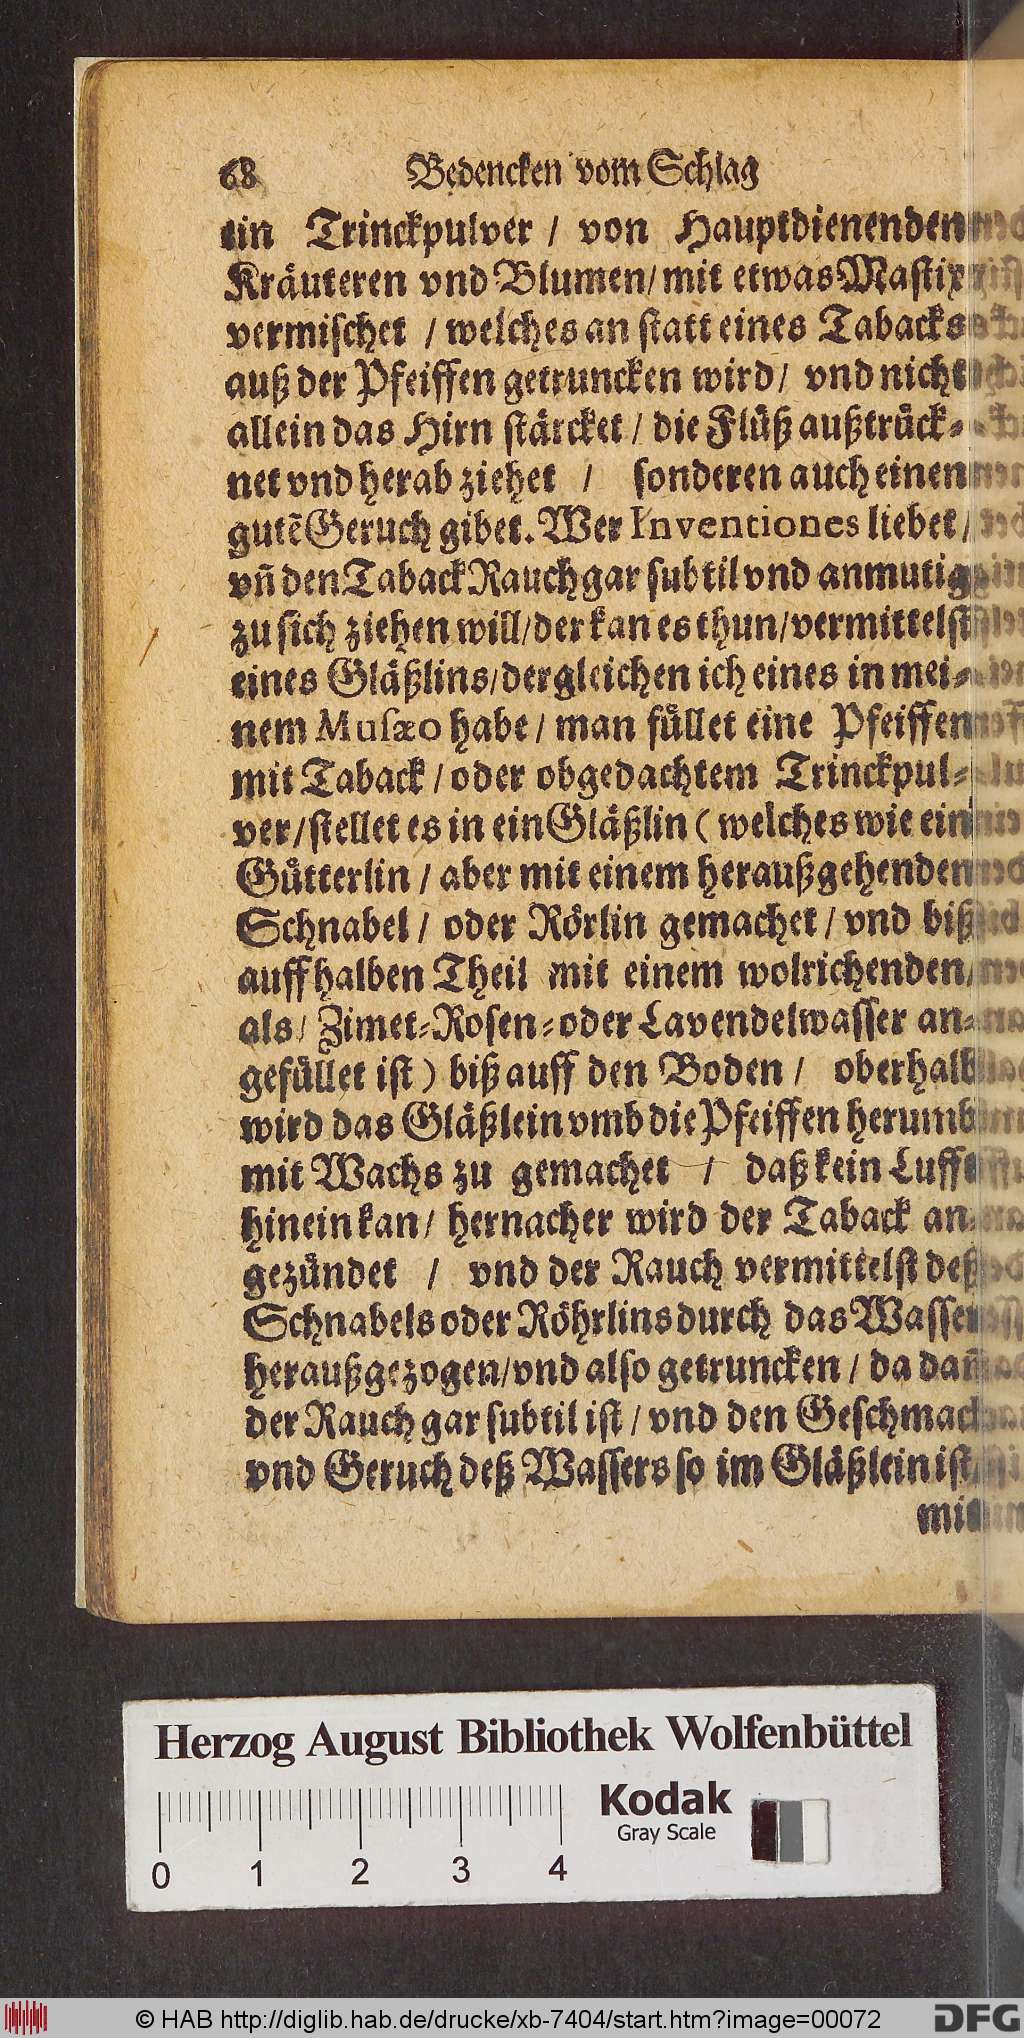 68 Bedencken vom Schlag
ein Trinckpulver / von Hauptdienenden
Kräuteren vnd Blumen/ mit etwas Mastix
vermischet / welches an statt eines Tabacks
auß der Pfeiffen getruncken wird/ vnd nicht
allein das Hirn stärcket / die Flüß außtrück-
net vnd herab ziehet / sonderen auch einen
gutẽ Geruch gibet. Wer Inventiones liebet /
vñ den Taback Rauch gar subtil vnd anmutig
zu sich ziehen will/ der kan es thun/ vermittelst
eines Gläßlins/ dergleichen ich eines in mei-
nem Musæo habe / man füllet eine Pfeiffen
mit Taback / oder obgedachtem Trinckpul-
ver/ stellet es in ein Gläßlin ( welches wie ein
Gütterlin / aber mit einem heraußgehenden
Schnabel / oder Rörlin gemachet / vnd biß
auff halben Theil mit einem wolrichenden/
als/ Zimet-Rosen-oder Lavendelwasser an-
gefüllet ist ) biß auff den Boden / oberhalb
wird das Gläßlein vmb die Pfeiffen herumb
mit Wachs zu gemachet / daß kein Lufft
hinein kan/ hernacher wird der Taback an-
gezündet / vnd der Rauch vermittelst deß
Schnabels oder Röhrlins durch das Wasser
heraußgezogen/ vnd also getruncken / da dañ
der Rauch gar subtil ist / vnd den Geschmack
vnd Geruch deß Wassers so im Gläßlein ist/
mit
Herzog August Bibliothek Wolfenbüttel
Kodak
Gray Scale
0 1 2 3 4
© HAB http://diglib.hab.de/drucke/xb-7404/start.htm?image=00072
DFG